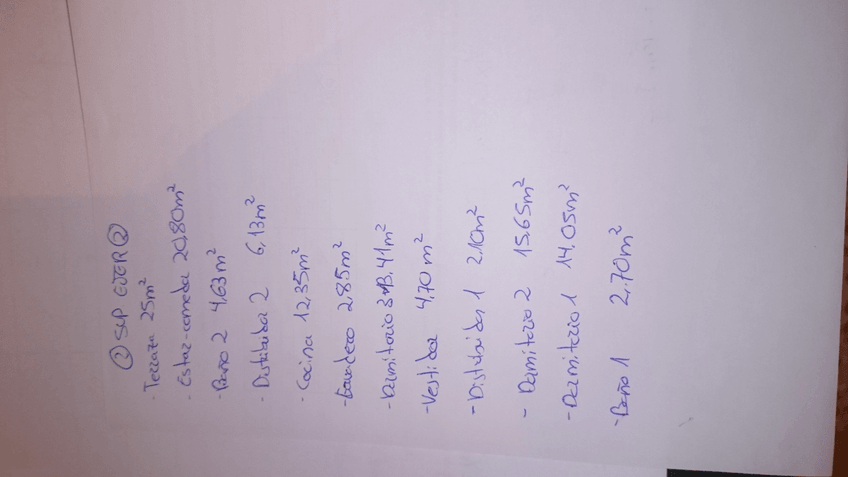 ② SUP EJER ②
- Terraza 25m²
- Estar-comedor 20,80m²
- Baño 2 4,63m²
- Distribuidor 2 6,13m²
- Cocina 12,35m²
- Lavadero 2,85m²
- Dormitorio 3 13,41m²
- Vestidor 4,70 m²
- Distribuidor 1 2,10m²
- Dormitorio 2 15,65m²
- Dormitorio 1 14,05m²
- Baño 1 2,70m²